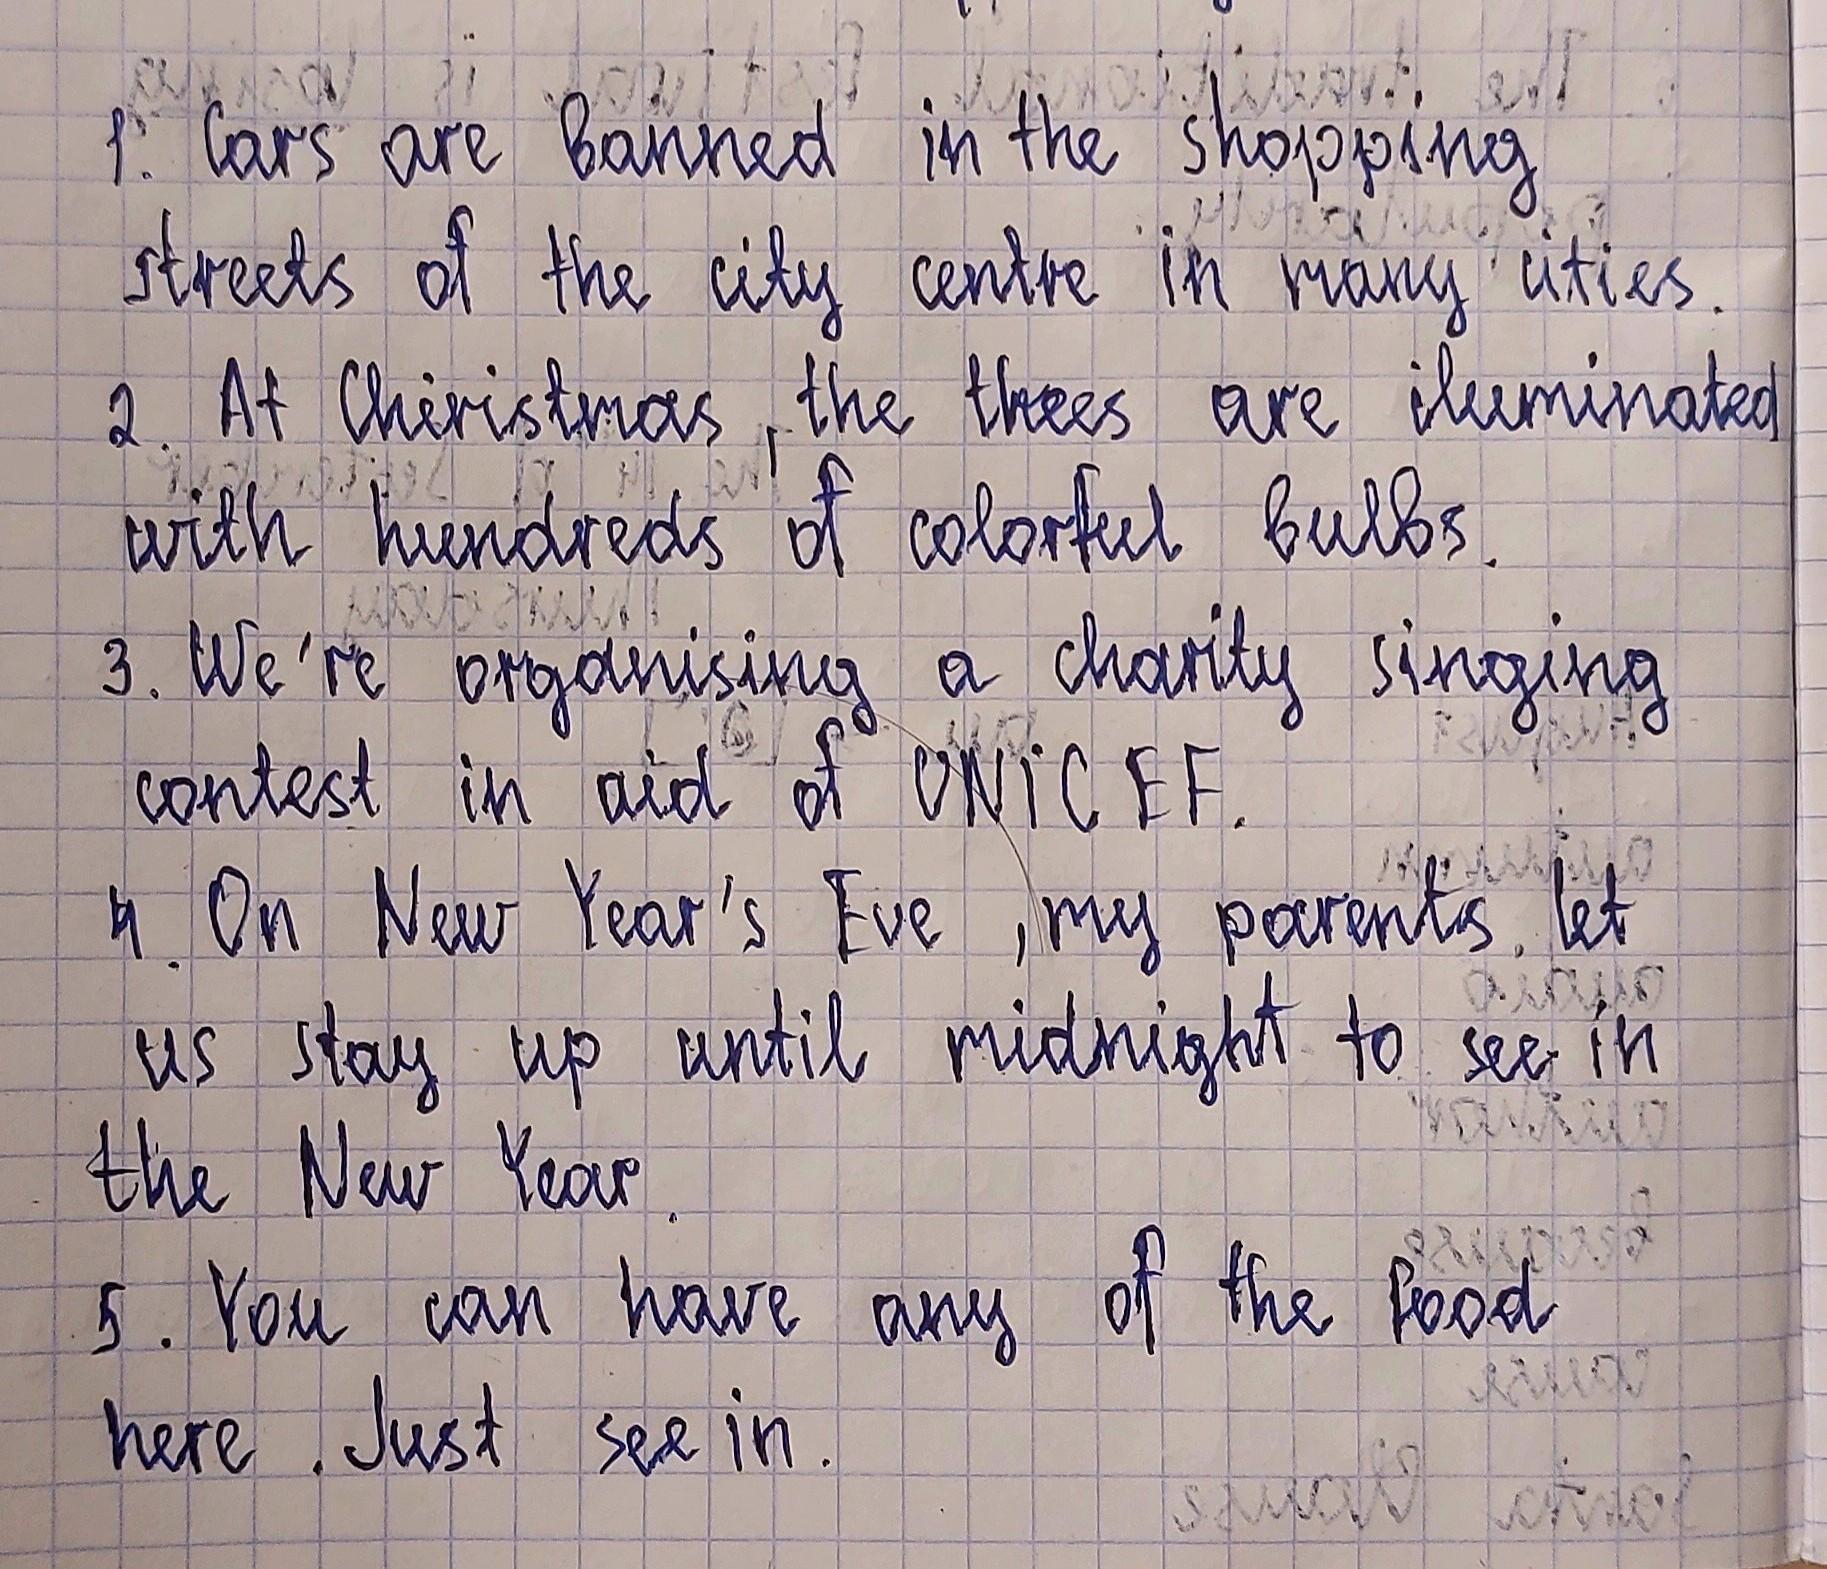 1. Cars are banned in the shopping
streets of the city centre in many cities.
2. At Chiristmas, the threes are iluminated
with hundreds of colorful bulbs.
3. We're organising a charity singing
contest in aid of UNICEF.
4. On New Year's Eve, my parents let
us stay up until midnight to see in
the New Year.
5. You can have any of the food
here. Just see in.